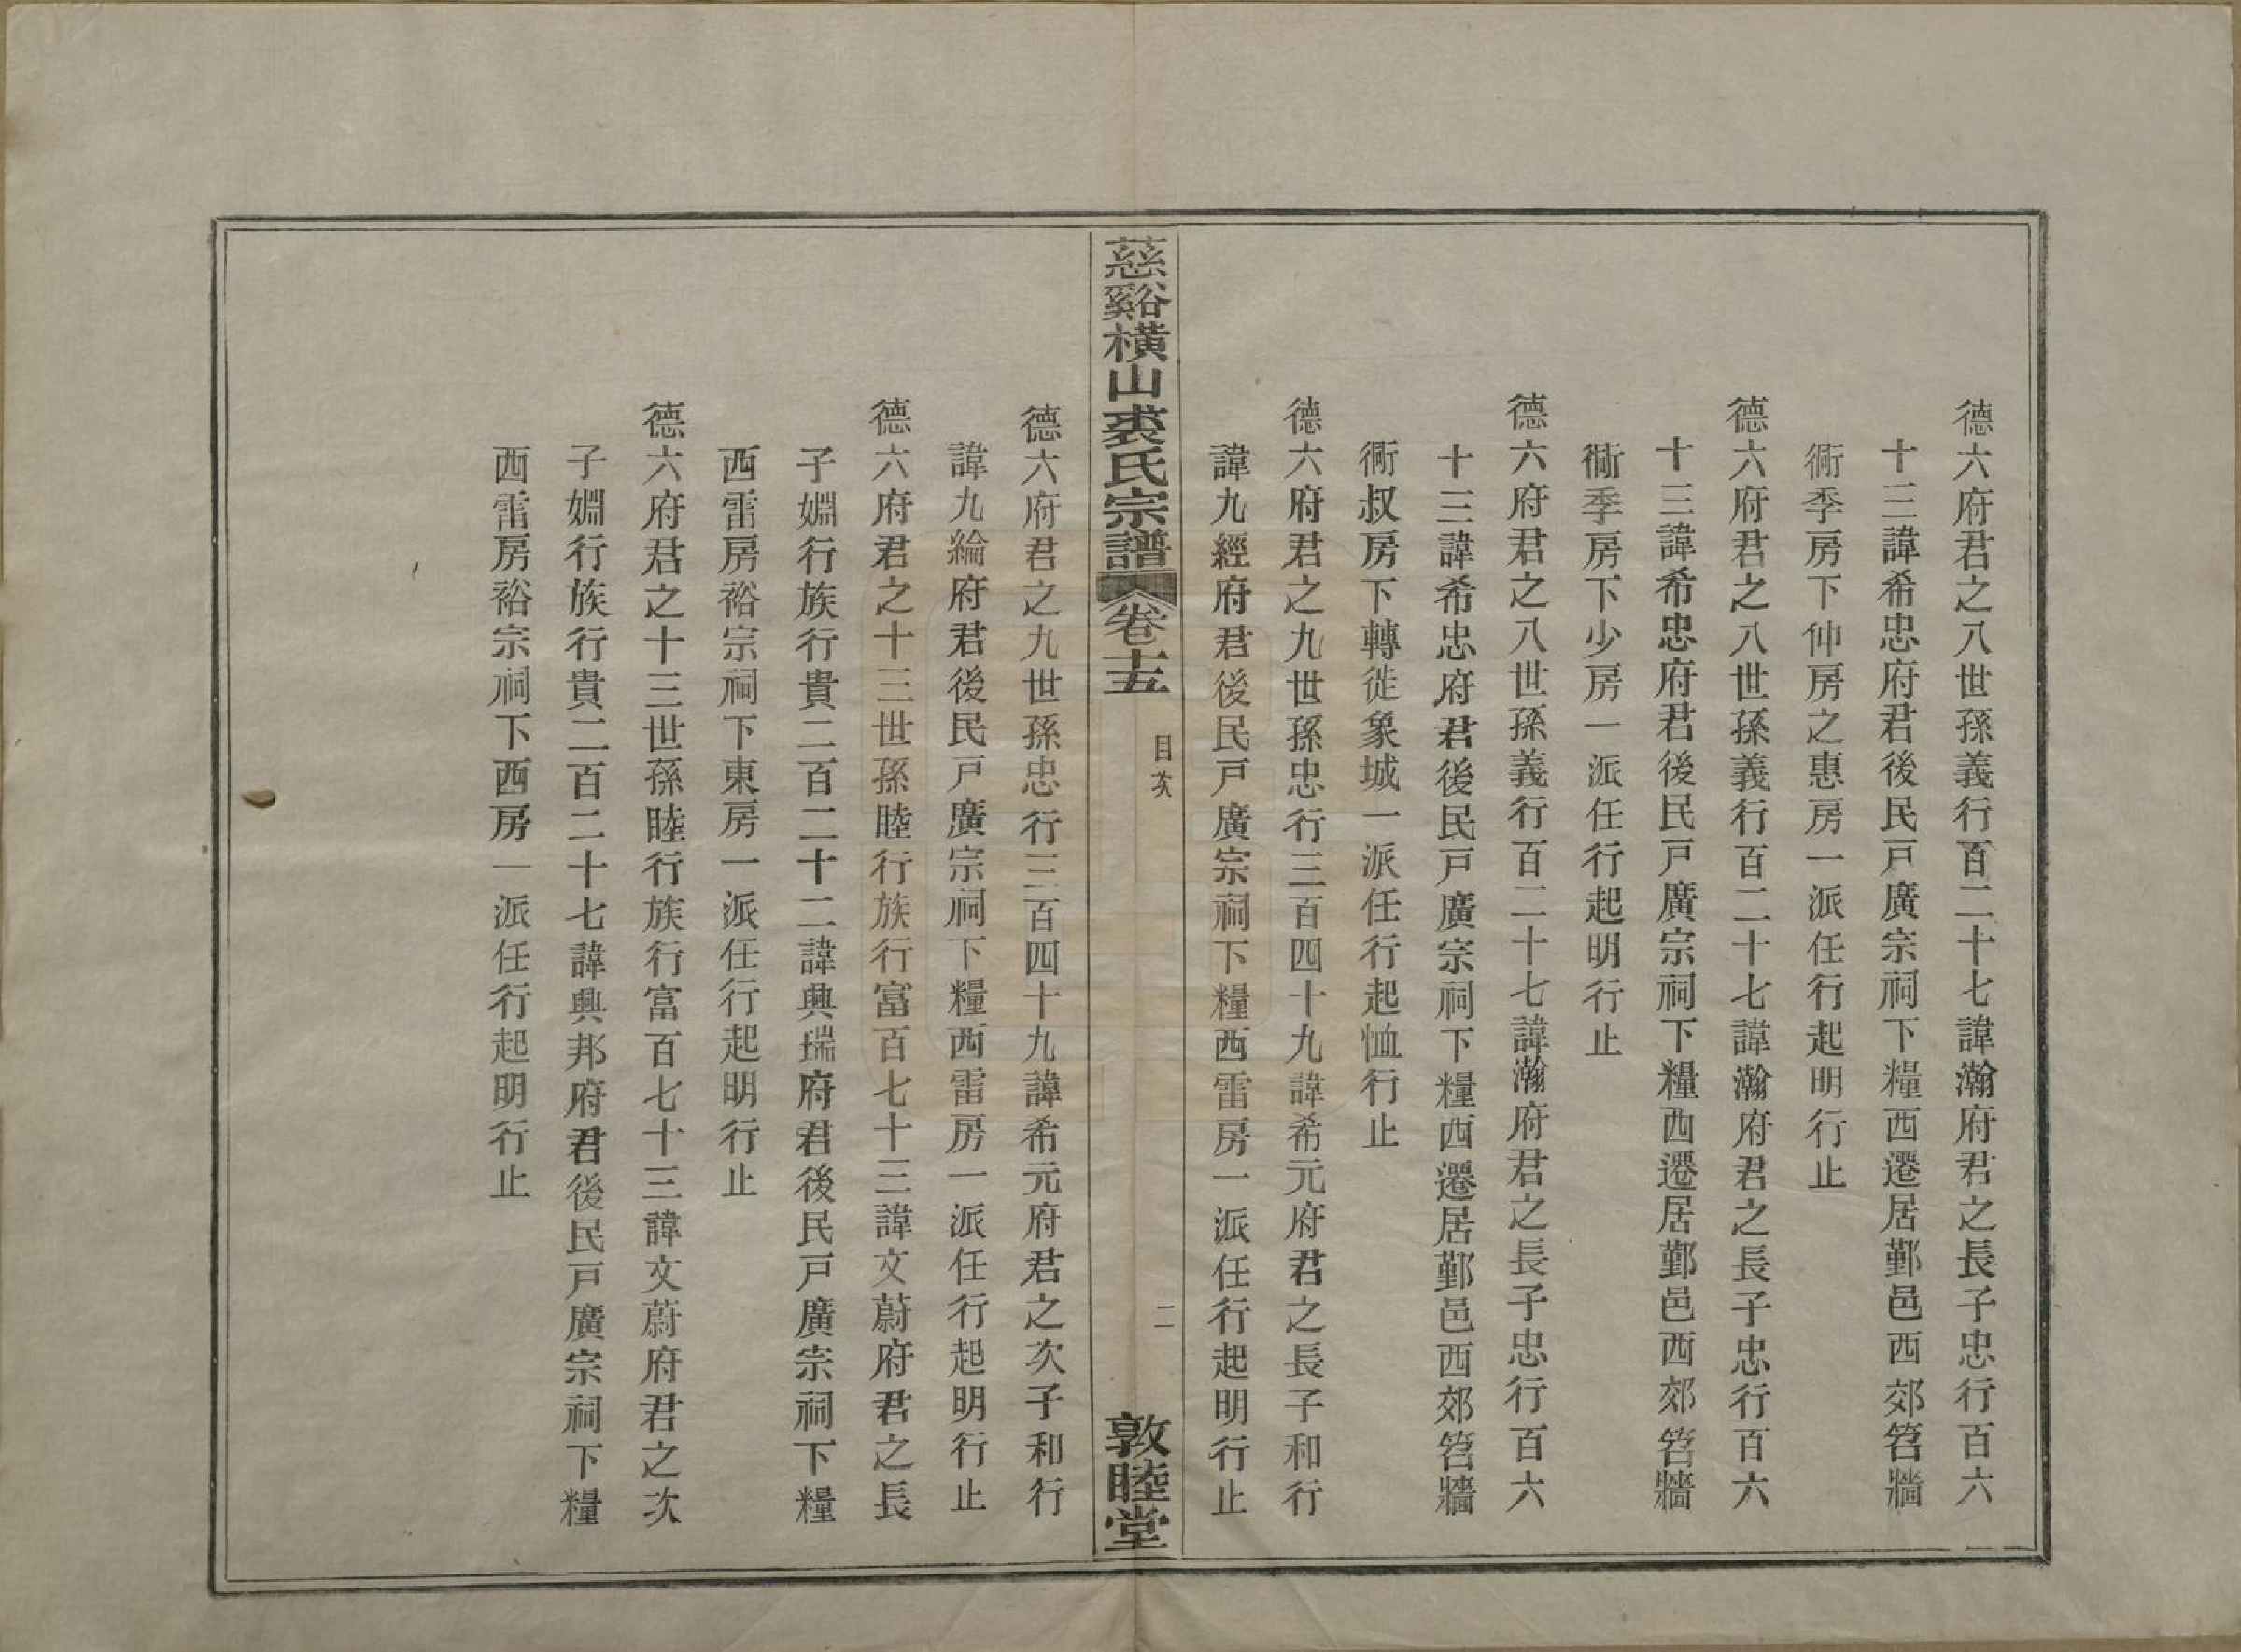 德六府君之八世孫義行百二十七諱瀚府君之長子忠行百六
十三諱希忠府君後民戸廣宗祠下糧西遷居鄞邑西郊笤牆
衕季房下仲房之惠房一派任行起明行止
德六府君之八世孫義行百二十七諱瀚府君之長子忠行百六
十三諱希忠府君後民戸廣宗祠下糧西遷居鄞邑西郊笤牆
衕季房下少房一派任行起明行止
德六府君之八世孫義行百二十七諱瀚府君之長子忠行百六
十三諱希忠府君後民戸廣宗祠下糧西遷居鄞邑西郊笤牆
衕叔房下轉徙象城一派任行起恤行止
德六府君之九世孫忠行三百四十九諱希元府君之長子和行
諱九經府君後民戸廣宗祠下糧西雷房一派任行起明行止
慈谿橫山裘氏宗譜
卷十五
目次
二
敦睦堂
德六府君之九世孫忠行三百四十九諱希元府君之次子和行
諱九綸府君後民戸廣宗祠下糧西雷房一派任行起明行止
德六府君之十三世孫睦行族行富百七十三諱文蔚府君之長
子婣行族行貴二百二十二諱興瑞府君後民戸廣宗祠下糧
西雷房裕宗祠下東房一派任行起明行止
德六府君之十三世孫睦行族行富百七十三諱文蔚府君之次
子婣行族行貴二百二十七諱興邦府君後民戸廣宗祠下糧
西雷房裕宗祠下西房一派任行起明行止